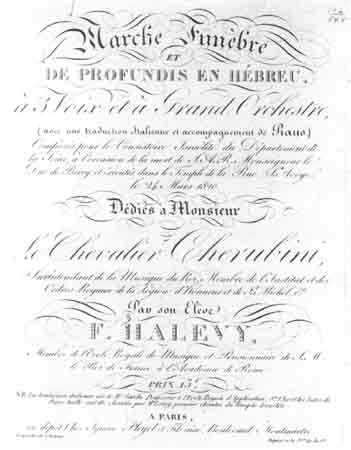 Marche Funèbre
ET
DE PROFUNDIS EN HÉBREU,
à 3 Voix et à Grand Orchestre,
(avec une traduction Italienne et accompagnement de Piano)
Composés pour le Consistoire Israélite du Département de
la Seine, à l'occasion de la mort de S.A.R. Monseigneur le
Duc de Berry et Exécutés dans le Temple de la Rue St. Avoye
le 24 Mars 1820.
Dédiés à Monsieur
Le Chevalier Cherubini,
Surintendant de la Musique du Roi, Membre de l'Institut et des
Ordres Royaux de la Légion d'Honneur et de St. Michel &c.
Par son Elève
F. HALEVY,
Membre de l'Ecole Royale de Musique et Pensionnaire de S. M.
le Roi de France à l'Académie de Rome
PRIX 15f.
NB. La traduction italienne est de Mr.
A PARIS,
au dépôt Chez Ignace Pleyel et Fils ainé, Boulevard Montmartre
Propriété de l'Auteur